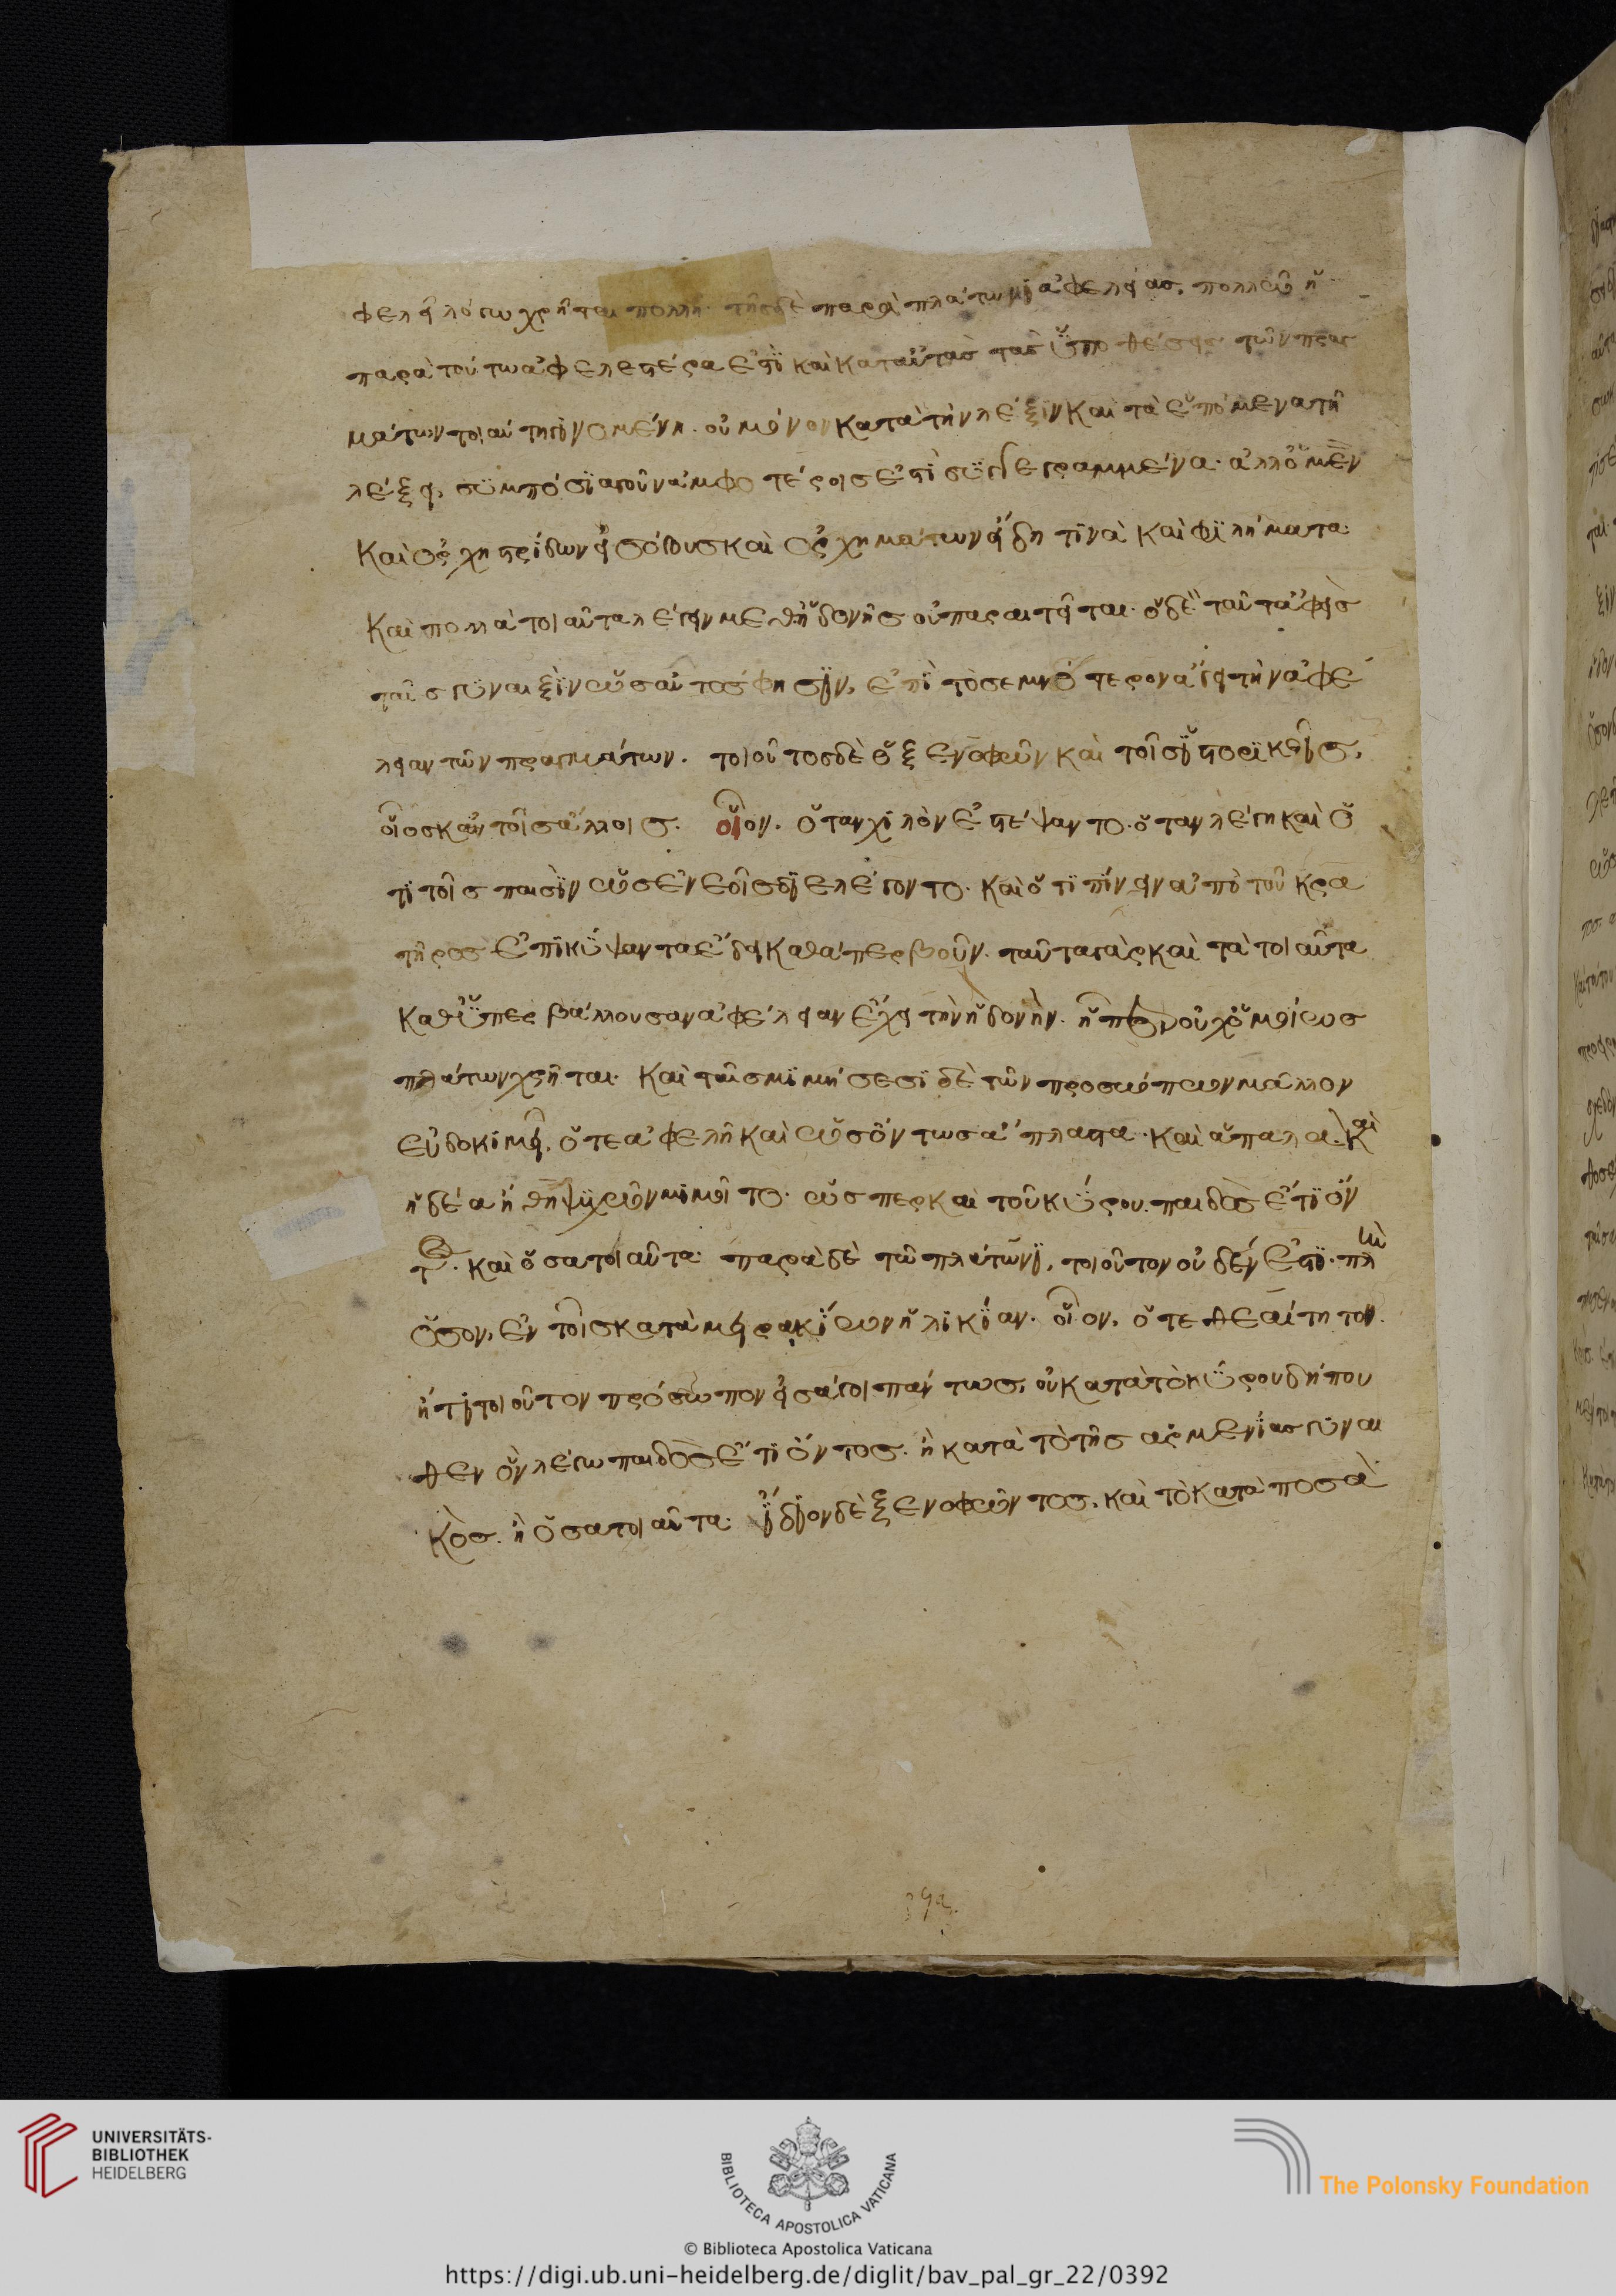 φελεῖ λόγω χρῆται πολλῆ. τῆς δὲ παρὰ πλάτωνι ἀφελείας, πολλῶ ἡ
παρὰ τούτω ἀφελεστέρα ἐστὶ καὶ κατ' αὐτὰς τὰς ὑποθέσεις τῶν πραγ
μάτων τοιαύτη γινομένη. οὐ μόνον κατὰ τὴν λέξιν καὶ τὰ ἑπόμενα τῆ
λέξει, συμπόσια γοῦν ἀμφοτέροις ἐστὶ συγγεγραμμένα. ἀλλ' ὁ μὲν
καὶ ὀρχηστρίδων εἰσόδους καὶ ὀρχημάτων εἴδη τινὰ καὶ φιλήματα.
καὶ πολλὰ τοιαῦτα λέγειν μεθ' ἡδονῆς οὐ παραιτεῖται. ὁ δὲ ταῦτα ἀφεὶς
ταῖς γυναιξὶν ὡς αὐτός φησιν, ἐπὶ τὸ σεμνότερον ἄγει τὴν ἀφέ
λειαν τῶν πραγμάτων. τοιοῦτος δὲ ὁ ξενοφῶν καὶ τοῖς ἱστορικοῖς,
οἷος κἂν τοῖς ἄλλοις. οἷον. ὅταν χιλὸν ἐστέψαντο. ὅταν λέγη καὶ ὅ
τι τοῖς παισὶν ὡς ἐν ἑοῖς διελέγοντο. καὶ ὅτι πίνειν ἀπὸ τοῦ κρα
τῆρος ἐπικύψαντα ἔδει καθάπερ βοῦν. ταῦτα γὰρ καὶ τὰ τοιαῦτα
καθ' ὑπερβάλλουσαν ἀφέλειαν ἔχει τὴν ἡδονήν. ἧπερ οὐχ ὁμοίως
πλάτων χρῆται. καὶ ταῖς μιμήσεσι δὲ τῶν προσώπων μᾶλλον
εὐδοκιμεῖ, ὅτε ἀφελῆ καὶ ὡς ὄντως ἄπλαστα. καὶ ἁπαλὰ. καὶ
ἡδέα ἤθη ψυχῶν μιμοῖτο. ὥσπερ καὶ τοῦ κύρου. παιδὸς ἔτι ὄν
τος. καὶ ὅσα τοιαῦτα. παρὰ δὲ τῶ πλάτωνι, τοιοῦτον οὐδέν ἐστι. πλὴν
ὅσον, ἐν τοῖς κατὰ μειρακίων ἡλικίαν. οἷον, ὅτε θεαίτητον.
ἤ τι τοιοῦτον πρόσωπον εἰσάγοι πάντως, οὐ κατὰ τὸ κύρου δήπου
θεν ὃν λέγω παιδὸς ἔτι ὄντος. ἢ κατὰ τὸ τῆς ἀρμενίας γυναι
κὸς. ἢ ὅσα τοιαῦτα. ἴδιον δὲ ξενοφῶντος, καὶ τὸ κατὰ ποσὰ
UNIVERSITÄTS-
BIBLIOTHEK
HEIDELBERG
BIBLIOTECA APOSTOLICA VATICANA
The Polonsky Foundation
© Biblioteca Apostolica Vaticana
https://digi.ub.uni-heidelberg.de/diglit/bav_pal_gr_22/0392